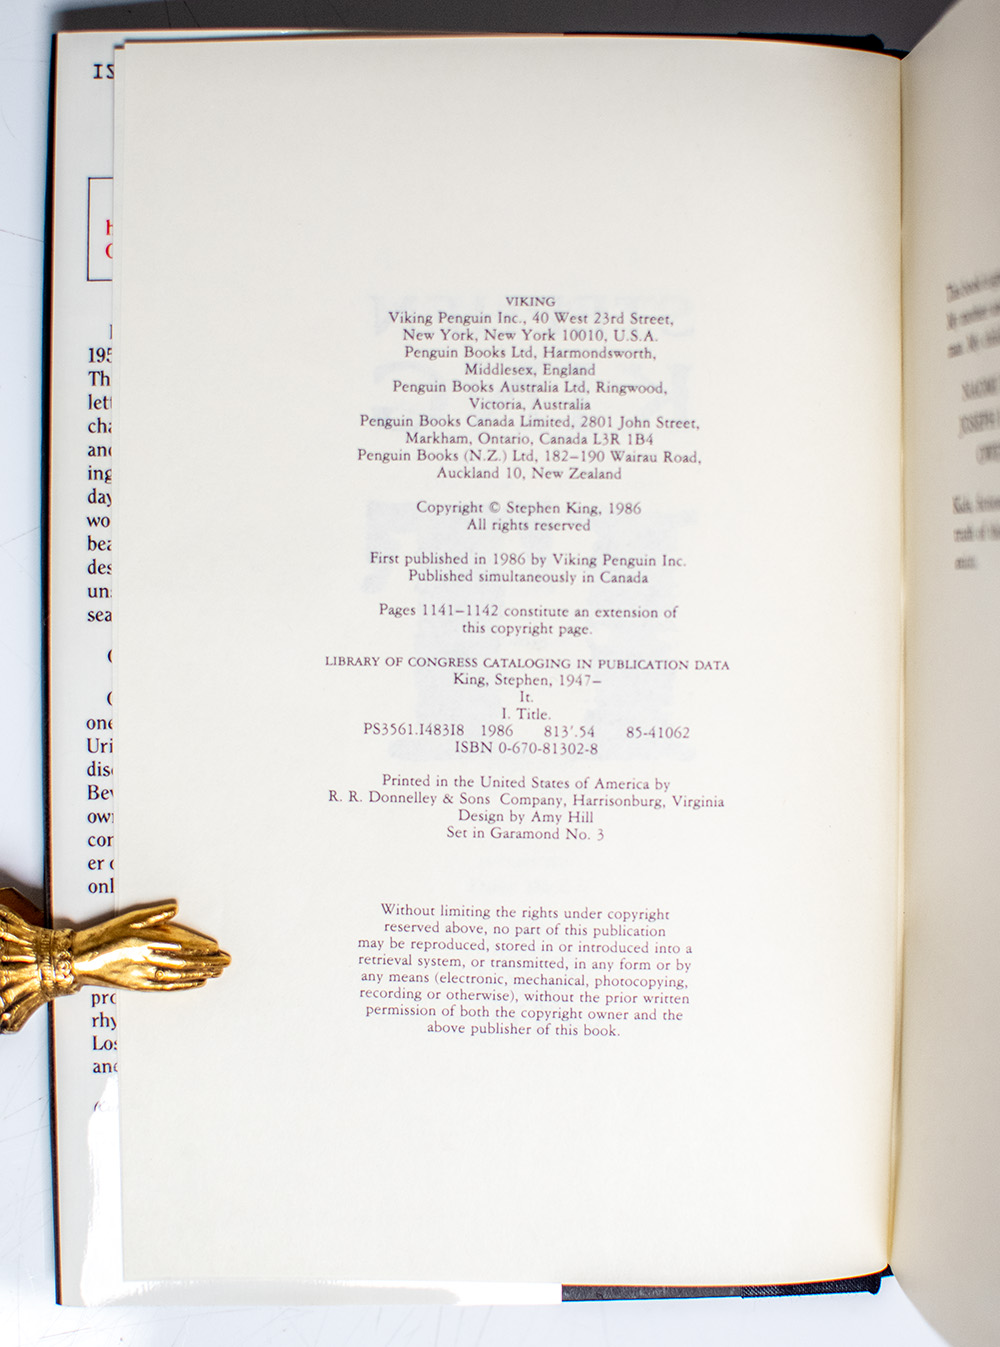 IS
195
Th
let
cha
and
ing
day
wo
bea
des
un
sea
one
Uri
dis
Bev
ow
con
er
onl
pro
rhy
Los
and
VIKING
Viking Penguin Inc., 40 West 23rd Street,
New York, New York 10010, U.S.A.
Penguin Books Ltd, Harmondsworth,
Middlesex, England
Penguin Books Australia Ltd, Ringwood,
Victoria, Australia
Penguin Books Canada Limited, 2801 John Street,
Markham, Ontario, Canada L3R 1B4
Penguin Books (N.Z.) Ltd, 182–190 Wairau Road,
Auckland 10, New Zealand
Copyright © Stephen King, 1986
All rights reserved
First published in 1986 by Viking Penguin Inc.
Published simultaneously in Canada
Pages 1141–1142 constitute an extension of
this copyright page.
LIBRARY OF CONGRESS CATALOGING IN PUBLICATION DATA
King, Stephen, 1947–
It.
I. Title.
PS3561.I483I8 1986 813'.54 85-41062
ISBN 0-670-81302-8
Printed in the United States of America by
R. R. Donnelley & Sons Company, Harrisonburg, Virginia
Design by Amy Hill
Set in Garamond No. 3
Without limiting the rights under copyright
reserved above, no part of this publication
may be reproduced, stored in or introduced into a
retrieval system, or transmitted, in any form or by
any means (electronic, mechanical, photocopying,
recording or otherwise), without the prior written
permission of both the copyright owner and the
above publisher of this book.